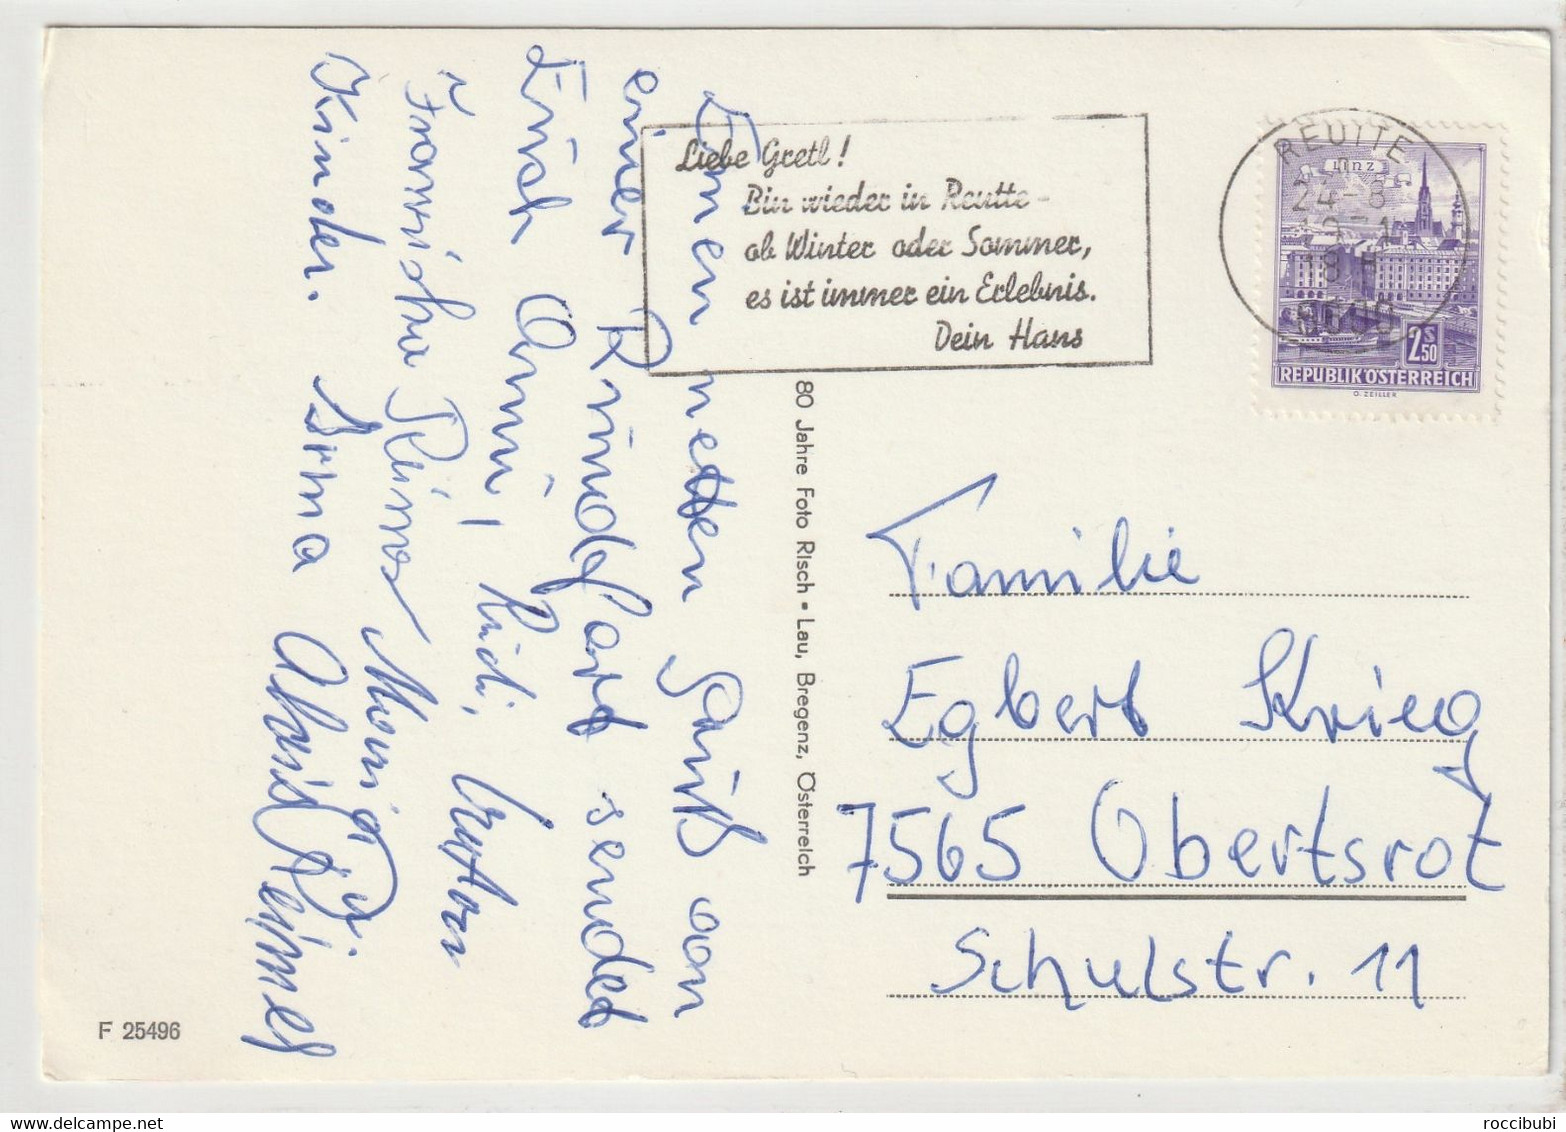 Einen netten Gruß von
einer Rundfahrt sendet
Euch Anni, Rudi,
Franziska
Kinder. Irma
Liebe Gretl!
Bin wieder in Reutte -
ob Winter oder Sommer,
es ist immer ein Erlebnis.
Dein Hans
REUTTE
24-8
6600
LINZ
2S50
REPUBLIK ÖSTERREICH
O. ZEILLER
80 Jahre Foto Risch • Lau, Bregenz, Österreich
Familie
Egbert Krieg
7565 Obertsrot
Schulstr. 11
F 25496
roccibubi